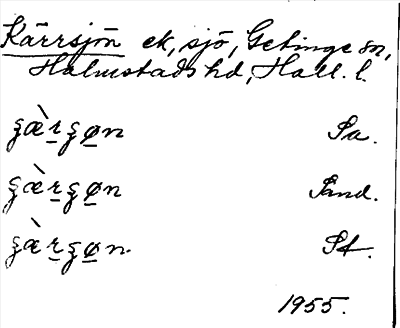 Kärrsjön ek, sjö, Getinge sn,
Halmstads hd, Hall. l.
ʂæ̀rʂøn Sa.
ʂæ̀rʂøn Sand.
ʂæ̀rʂøn. St.
1955.